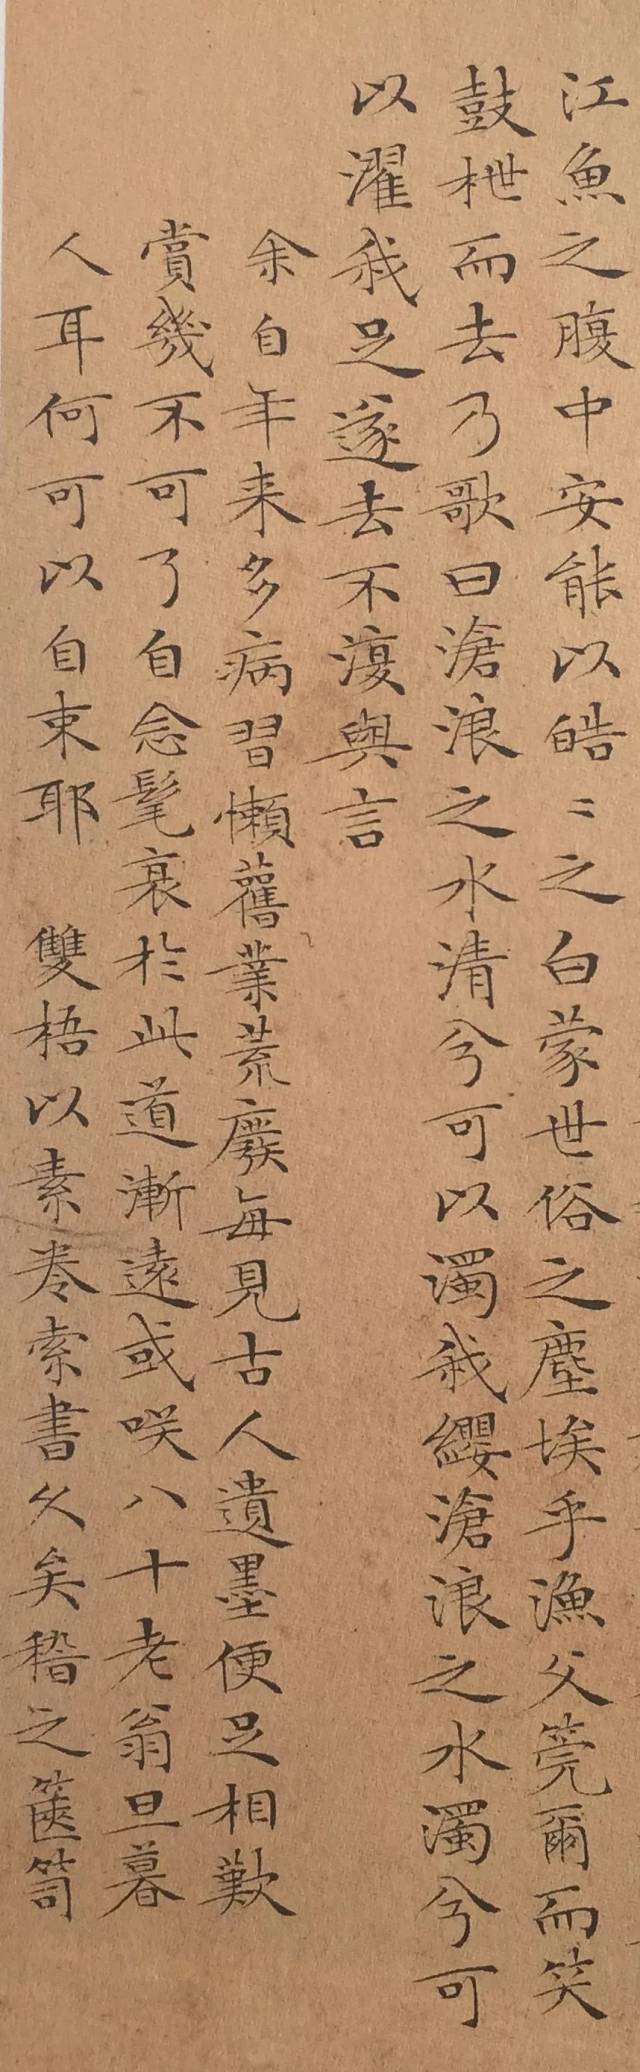 江魚之腹中安能以皓〻之白蒙世俗之塵埃乎漁父莞爾而笑
鼓枻而去乃歌曰滄浪之水清兮可以濯我纓滄浪之水濁兮可
以濯我足遂去不復與言
余自年来多病習懶舊業荒廢每見古人遺墨便足相歎
賞幾不可了自念髦衰於此道漸遠或咲八十老翁旦暮
人耳何可以自束耶 雙梧以素卷索書久矣稽之篋笥